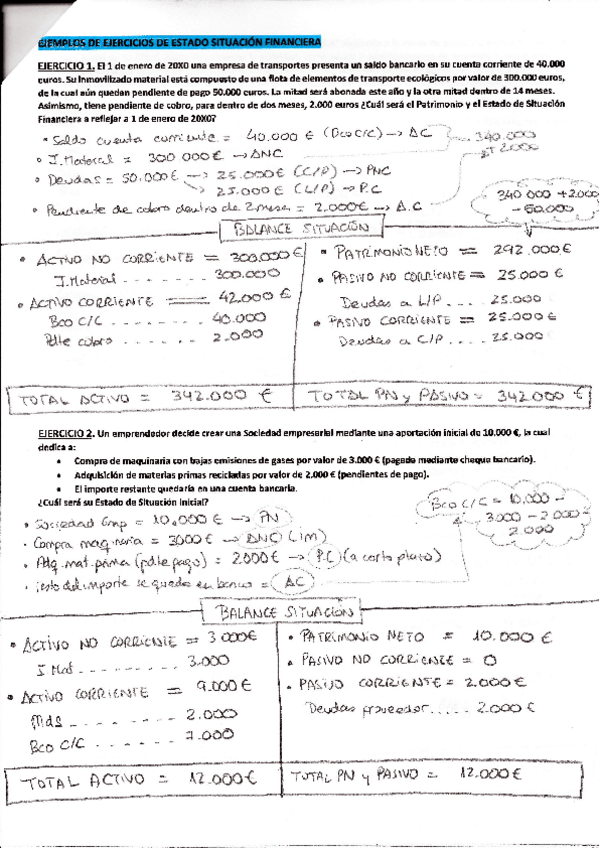 EJEMPLOS DE EJERCICIOS DE ESTADO SITUACIÓN FINANCIERA
EJERCICIO 1. El 1 de enero de 20X0 una empresa de transportes presenta un saldo bancario en su cuenta corriente de 40.000
euros. Su inmovilizado material está compuesto de una flota de elementos de transporte ecológicos por valor de 300.000 euros,
de la cual aún quedan pendiente de pago 50.000 euros. La mitad será abonada este año y la otra mitad dentro de 14 meses.
Asimismo, tiene pendiente de cobro, para dentro de dos meses, 2.000 euros ¿Cuál será el Patrimonio y el Estado de Situación
Financiera a reflejar a 1 de enero de 20X0?
• Saldo cuenta corriente = 40.000 € (Bco C/C) → AC
340.000
+ 2000
• I. Material = 300 000 € → ANC
• Deudas = 50.000 € → 25.000 € (C/P) → PNC
→ 25.000 € (L/P) → P.C
340 000 + 2000
- 50.000
• Pendiente de cobro dentro de 2 meses = 2.000 € → A.C
BALANCE SITUACIÓN
• ACTIVO NO CORRIENTE = 300.000 €
I. Material - - - - - - - 300.000
• ACTIVO CORRIENTE = 42.000 €
Bco C/C - - - - - - - - 40.000
Pdte cobro - - - - - - 2.000
• PATRIMONIO NETO = 292.000 €
• PASIVO NO CORRIENTE = 25.000 €
Deudas a L/P . . . . 25.000
• PASIVO CORRIENTE = 25.000 €
Deudas a C/P . . . . 25.000
TOTAL ACTIVO = 342.000 €
TOTAL PN y PASIVO = 342000 €
EJERCICIO 2. Un emprendedor decide crear una Sociedad empresarial mediante una aportación inicial de 10.000 €, la cual
dedica a:
• Compra de maquinaria con bajas emisiones de gases por valor de 3.000 € (pagada mediante cheque bancario).
• Adquisición de materias primas recicladas por valor de 2.000 € (pendientes de pago).
• El importe restante quedaría en una cuenta bancaria.
¿Cuál será su Estado de Situación Inicial?
Bco C/C = 10.000 -
3.000 - 2.000 =
2.000
• Sociedad Emp = 10.000 € → PN
• Compra maquinaria = 3000 € → ANC (IM)
• Adq. mat. prima (pdte pago) = 2000 € → P.C (a corto plazo)
• resto del importe se queda en banco = AC
BALANCE SITUACIÓN
• ACTIVO NO CORRIENTE = 3.000 €
I Mat - - - - - - - - 3.000
• ACTIVO CORRIENTE = 9.000 €
- - - - - - - 2.000
Bco C/C - - - - - - 7.000
• PATRIMONIO NETO = 10.000 €
• PASIVO NO CORRIENTE = 0
• PASIVO CORRIENTE = 2.000 €
Deudas proveedor . . . . . 2.000 €
TOTAL ACTIVO = 12.000 €
TOTAL PN y PASIVO = 12.000 €